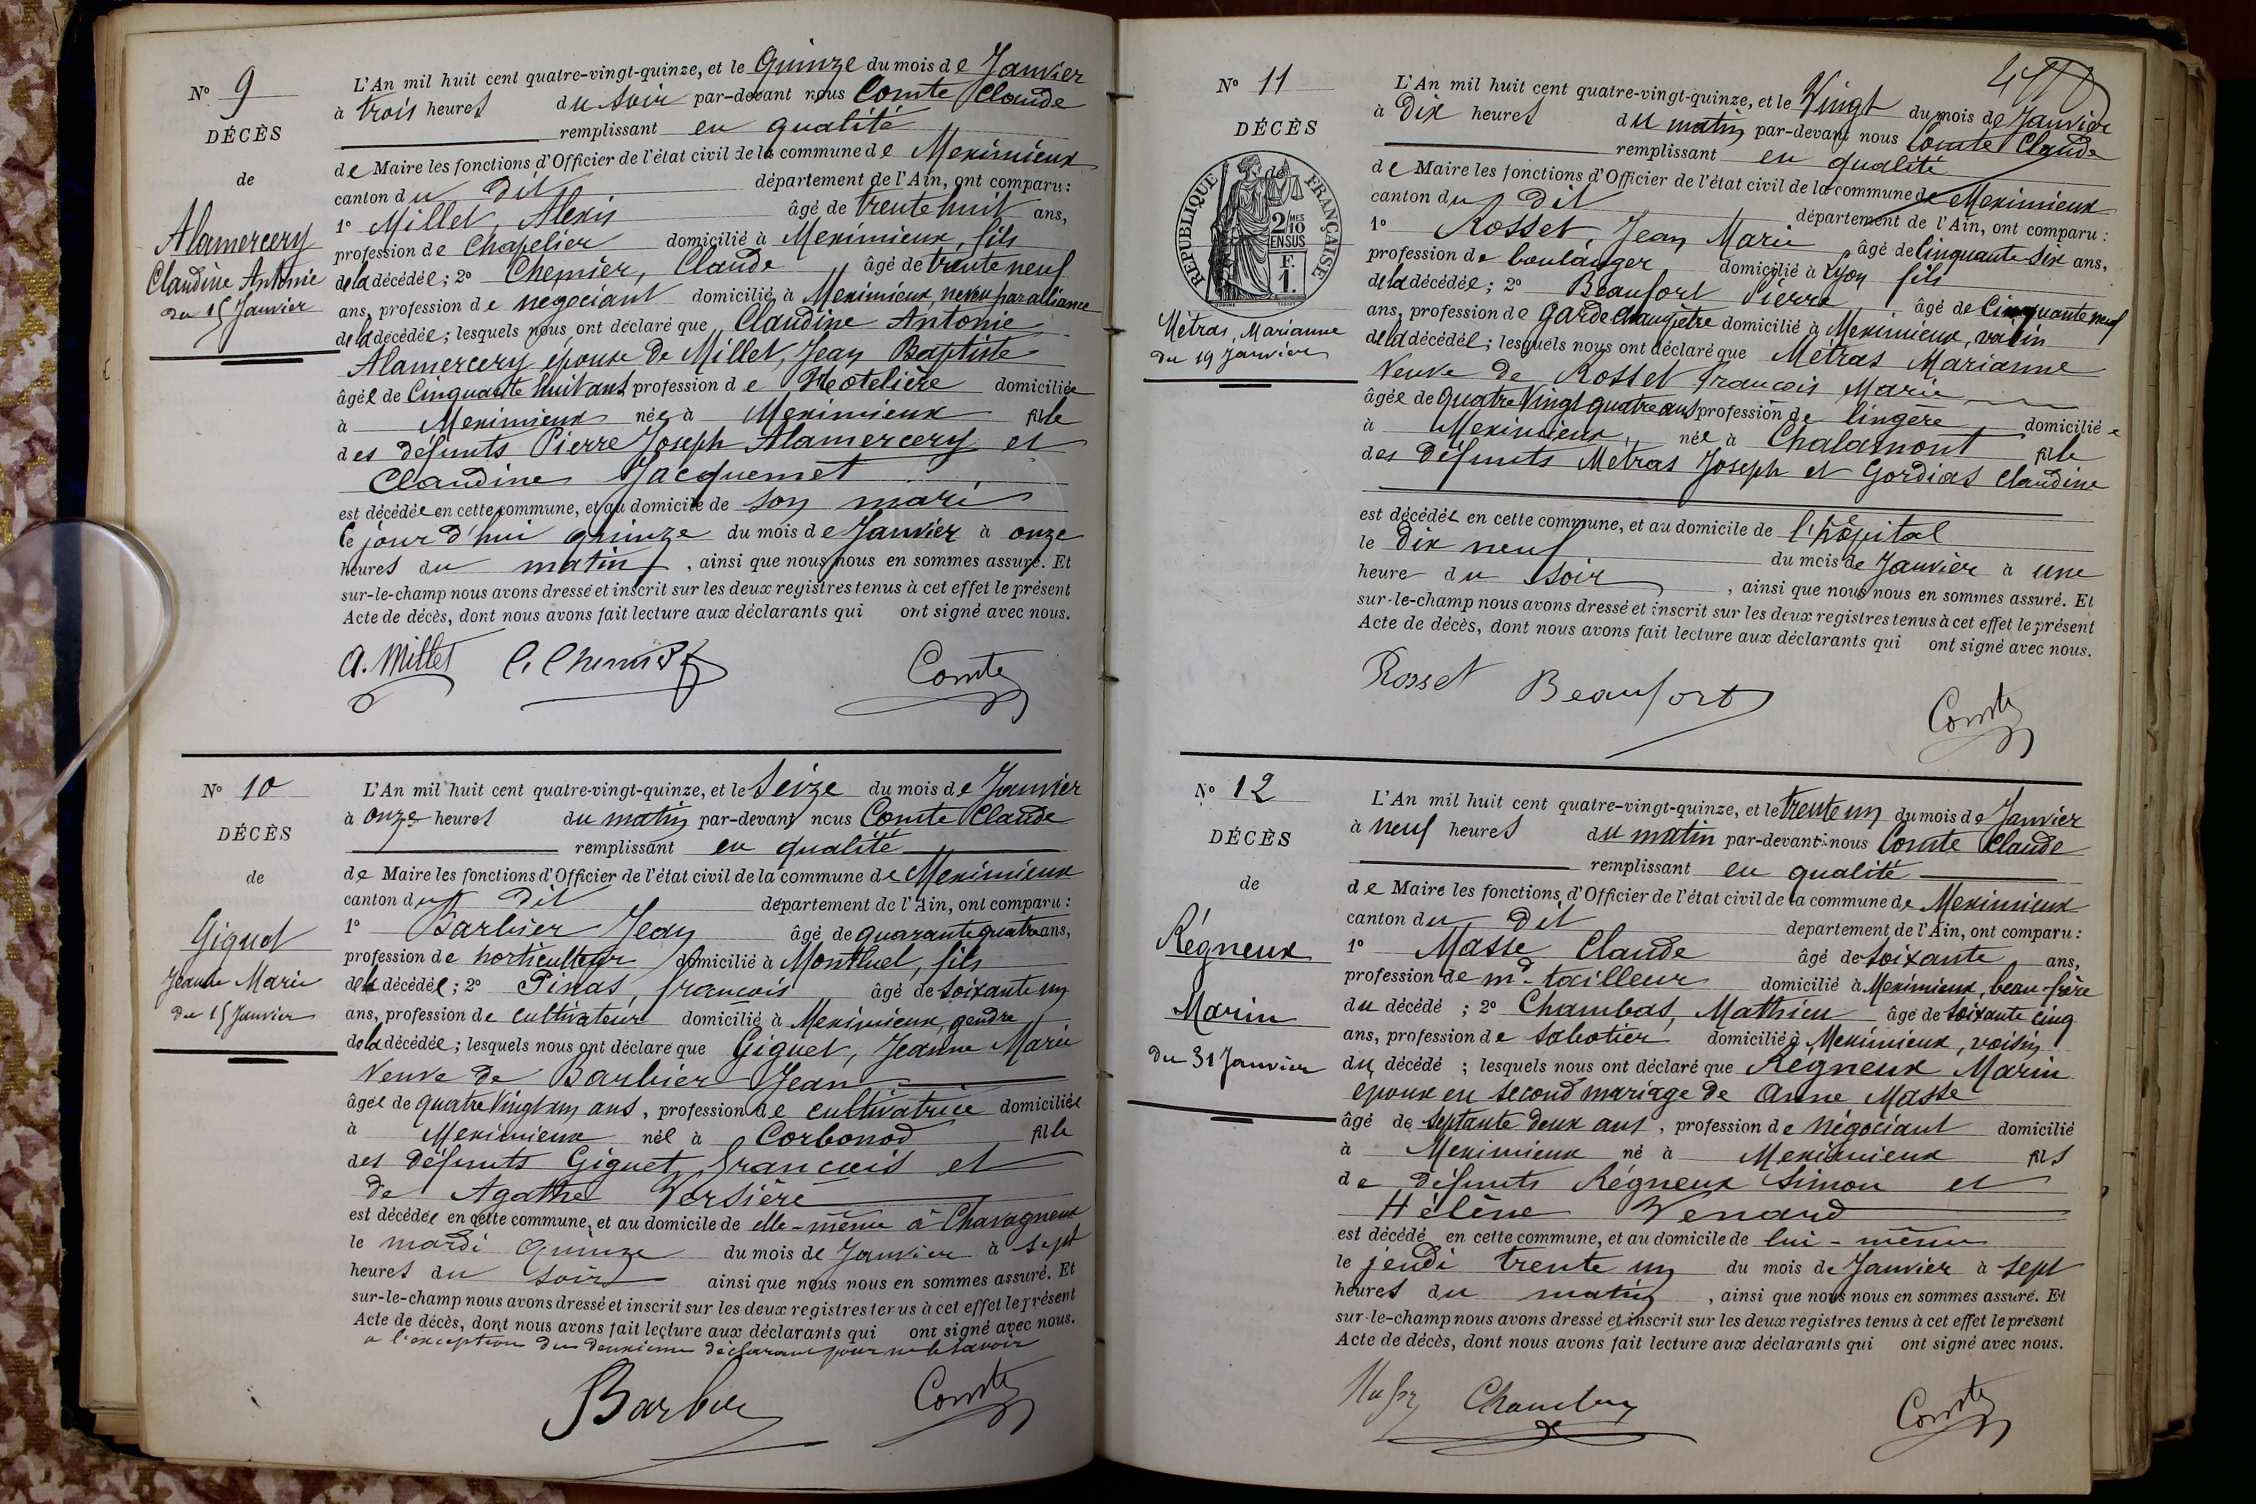 Nº 9
DÉCÈS
de
Alamercery
Claudine Antonie
du 15 Janvier
L'An mil huit cent quatre-vingt-quinze, et le Quinze du mois de Janvier
à trois heures du soir par-devant nous Comte Claude
remplissant en qualité
de Maire les fonctions d'Officier de l'état civil de la commune de Meximieux
canton du dit département de l'Ain, ont comparu :
1º Millet, Alexis âgé de trente huit ans,
profession de Chapelier domicilié à Meximieux, fils
de la décédée ; 2º Chemier, Claude âgé de trente neuf
ans, profession de négociant domicilié à Meximieux, neveu par alliance
de la décédée ; lesquels nous ont déclaré que Claudine Antonie
Alamercery épouse de Millet, Jean Baptiste
âgée de Cinquante huit ans profession de Hotelière domiciliée
à Meximieux née à Meximieux fille
des défunts Pierre Joseph Alamercery et
Claudine Jacquemet
est décédée en cette commune, et au domicile de son mari
le jour d'hui quinze du mois de Janvier à onze
heures du matin, ainsi que nous nous en sommes assuré. Et
sur-le-champ nous avons dressé et inscrit sur les deux registres tenus à cet effet le présent
Acte de décès, dont nous avons fait lecture aux déclarants qui ont signé avec nous.
A. Millet C. Chemier Comte
Nº 10
DÉCÈS
de
Giguet
Jeanne Marie
du 15 Janvier
L'An mil huit cent quatre-vingt-quinze, et le Seize du mois de Janvier
à onze heures du matin par-devant nous Comte Claude
remplissant en qualité
de Maire les fonctions d'Officier de l'état civil de la commune de Meximieux
canton du dit département de l'Ain, ont comparu :
1º Barbier Jean âgé de quarante quatre ans,
profession de horticulteur domicilié à Montluel, fils
de la décédée ; 2º Pinas, françois âgé de soixante un
ans, profession de cultivateur domicilié à Meximieux, gendre
de la décédée ; lesquels nous ont déclaré que Giguet, Jeanne Marie
Veuve de Barbier Jean
âgée de quatre Vingt un ans, profession de cultivatrice domiciliée
à Meximieux née à Corbonod fille
des défunts Giguet françois et
de Agathe Versière
est décédée en cette commune, et au domicile de elle-même à Chavagneux
le mardi Quinze du mois de Janvier à sept
heures du soir ainsi que nous nous en sommes assuré. Et
sur-le-champ nous avons dressé et inscrit sur les deux registres tenus à cet effet le présent
Acte de décès, dont nous avons fait lecture aux déclarants qui ont signé avec nous.
a l'exception du deuxième déclarant pour ne le savoir
Barbier Comte
Nº 11
DÉCÈS
de
RÉPUBLIQUE FRANÇAISE
2/10 MES
EN SUS
F.
1.
Métras, Marianne
du 19 Janvier
L'An mil huit cent quatre-vingt-quinze, et le Vingt du mois de Janvier
à Dix heures du matin par-devant nous Comte Claude
remplissant en qualité
de Maire les fonctions d'Officier de l'état civil de la commune de Meximieux
canton du dit département de l'Ain, ont comparu :
1º Rosset Jean Marie âgé de Cinquante six ans,
profession de boulanger domicilié à Lyon fils
de la décédée ; 2º Beaufort Pierre âgé de Cinquante neuf
ans, profession de garde champêtre domicilié à Meximieux, voisin
de la décédée ; lesquels nous ont déclaré que Métras Marianne
Veuve de Rosset françois Marie
âgée de Quatre Vingt quatre ans profession de lingère domiciliée
à Meximieux, née à Chalamont fille
des défunts Métras Joseph et Gordias Claudine
est décédée en cette commune, et au domicile de l'hôpital
le Dix neuf du mois de Janvier à une
heure du soir, ainsi que nous nous en sommes assuré. Et
sur-le-champ nous avons dressé et inscrit sur les deux registres tenus à cet effet le présent
Acte de décès, dont nous avons fait lecture aux déclarants qui ont signé avec nous.
Rosset Beaufort Comte
Nº 12
DÉCÈS
de
Régneux
Marin
du 31 Janvier
L'An mil huit cent quatre-vingt-quinze, et le trente un du mois de Janvier
à neuf heures du matin par-devant nous Comte Claude
remplissant en qualité
de Maire les fonctions d'Officier de l'état civil de la commune de Meximieux
canton du dit département de l'Ain, ont comparu :
1º Masse Claude âgé de soixante ans,
profession de md tailleur domicilié à Meximieux, beau-frère
du décédé ; 2º Chambas, Mathieu âgé de soixante cinq
ans, profession de sabotier domicilié à Meximieux, voisin
du décédé ; lesquels nous ont déclaré que Régneux Marin
époux en second mariage de Anne Masse
âgé de septante deux ans, profession de négociant domicilié
à Meximieux né à Meximieux fils
de défunts Régneux Simon et
Hélène Venard
est décédé en cette commune, et au domicile de lui-même
le jeudi trente un du mois de Janvier à sept
heures du matin, ainsi que nous nous en sommes assuré. Et
sur-le-champ nous avons dressé et inscrit sur les deux registres tenus à cet effet le présent
Acte de décès, dont nous avons fait lecture aux déclarants qui ont signé avec nous.
Comte